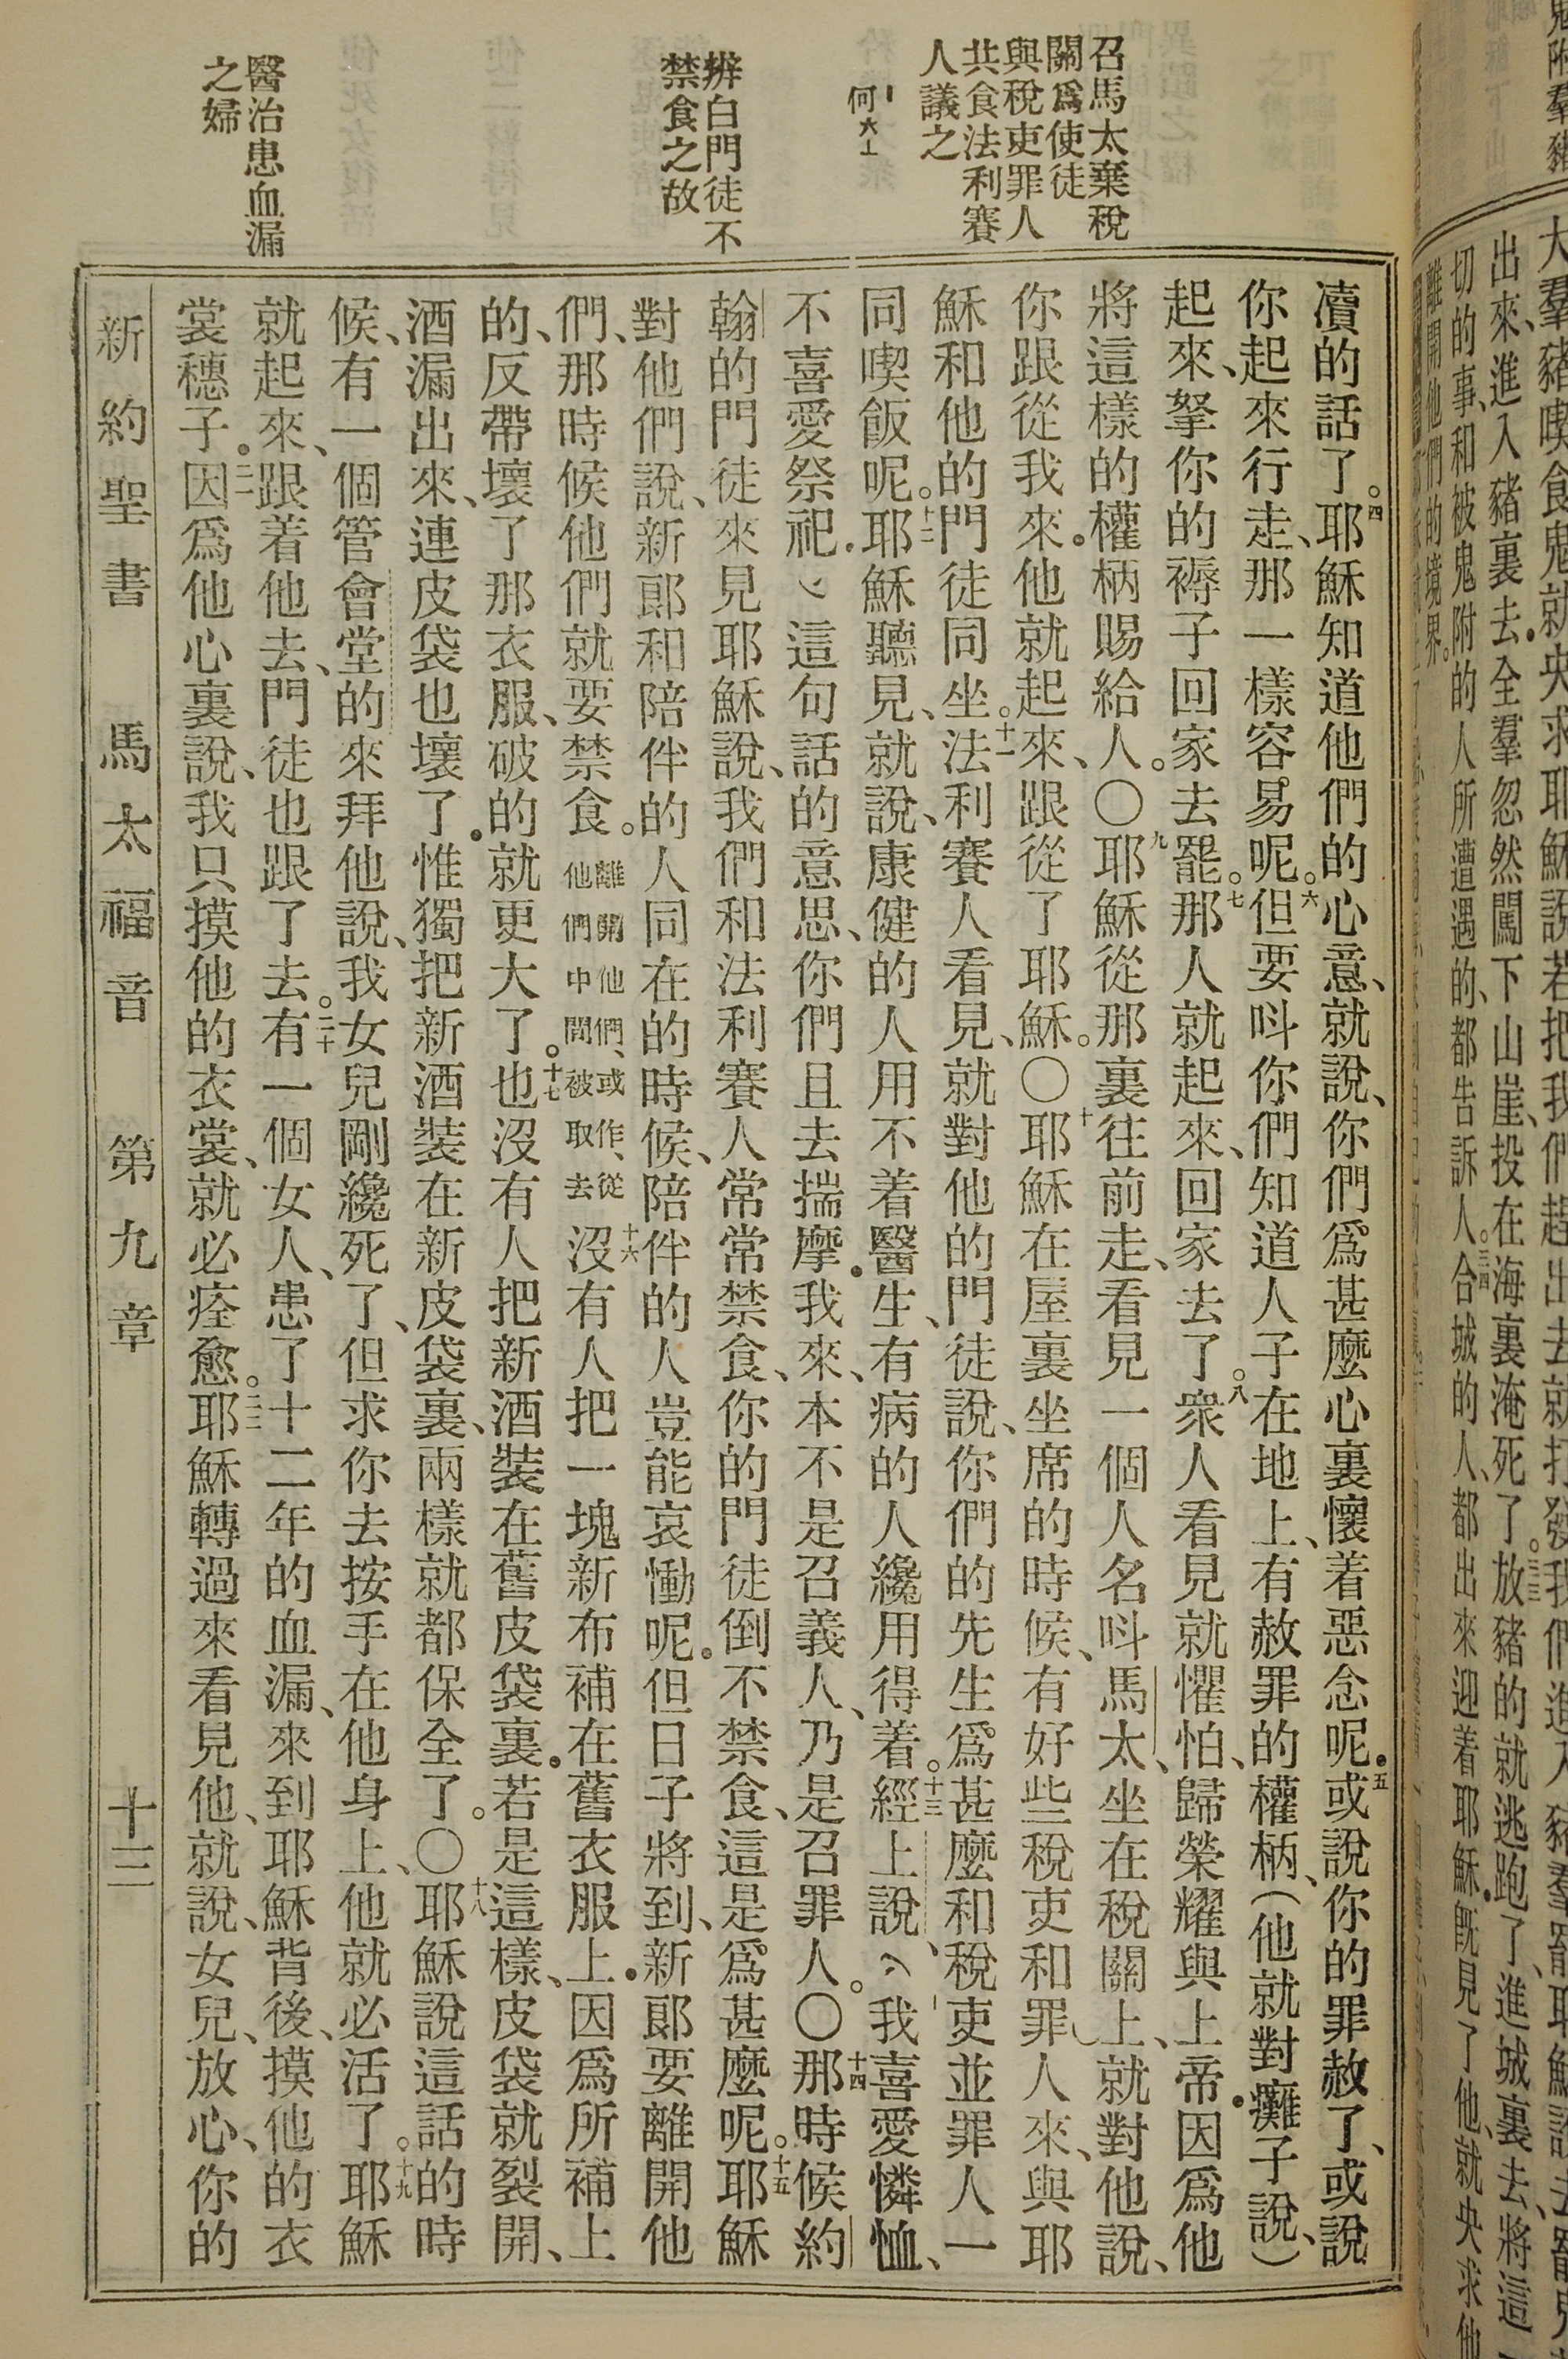 大羣豬喫食鬼就央求耶穌說若把我們趕出去就打發我們進入豬羣罷耶穌說去罷鬼
出來、進入豬裏去全羣忽然闖下山崖、投在海裏淹死了。三三放豬的就逃跑了、進城裏去、將這一
切的事、和被鬼附的人所遭遇的、都告訴人。三四合城的人、都出來迎着耶穌、既見了他、就央求他
離開他們的境界。
召馬太棄稅
關爲使徒
與稅吏罪人
共食法利賽
人議之
何六
辨白門徒不
禁食之故
醫治患血漏
之婦
瀆的話了。四耶穌知道他們的心意、就說、你們爲甚麼心裏懷着惡念呢。五或說你的罪赦了、或說
你起來行走、那一樣容易呢。六但要呌你們知道人子在地上、有赦罪的權柄、(他就對癱子說、)
起來、拏你的褥子回家去罷。七那人就起來、回家去了。八衆人看見就懼怕、歸榮耀與上帝因爲他
將這樣的權柄賜給人。〇九耶穌從那裏往前走、看見一個人名呌馬太、坐在稅關上、就對他說、
你跟從我來他就起來、跟從了耶穌。〇十耶穌在屋裏坐席的時候、有好些稅吏和罪人來、與耶
穌和他的門徒同坐。十一法利賽人看見、就對他的門徒說、你們的先生爲甚麼和稅吏並罪人一
同喫飯呢。十二耶穌聽見、就說、康健的人用不着醫生、有病的人纔用得着。十三經上說、我喜愛憐恤、
不喜愛祭祀這句話的意思、你們且去揣摩我來、本不是召義人、乃是召罪人。〇十四那時候約
翰的門徒來見耶穌說、我們和法利賽人常常禁食、你的門徒倒不禁食、這是爲甚麼呢。十五耶穌
對他們說、新郎和陪伴的人同在的時候、陪伴的人豈能哀慟呢。但日子將到、新郎要離開他
們、那時候他們就要禁食。離開他們、或作、從他們中間被取去十六沒有人把一塊新布補在舊衣服上因爲所補上
的、反帶壞了那衣服、破的就更大了。十七也沒有人把新酒裝在舊皮袋裏若是這樣、皮袋就裂開、
酒漏出來、連皮袋也壞了惟獨把新酒裝在新皮袋裏、兩樣就都保全了。〇十八耶穌說這話的時
候、有一個管會堂的來拜他說、我女兒剛纔死了、但求你去按手在他身上、他就必活了。十九耶穌
就起來、跟着他去、門徒也跟了去。二十有一個女人、患了十二年的血漏、來到耶穌背後、摸他的衣
裳穗子二一因爲他心裏說、我只摸他的衣裳、就必痊愈。二二耶穌轉過來看見他、就說、女兒、放心、你的
新約聖書 馬太福音 第九章 十三